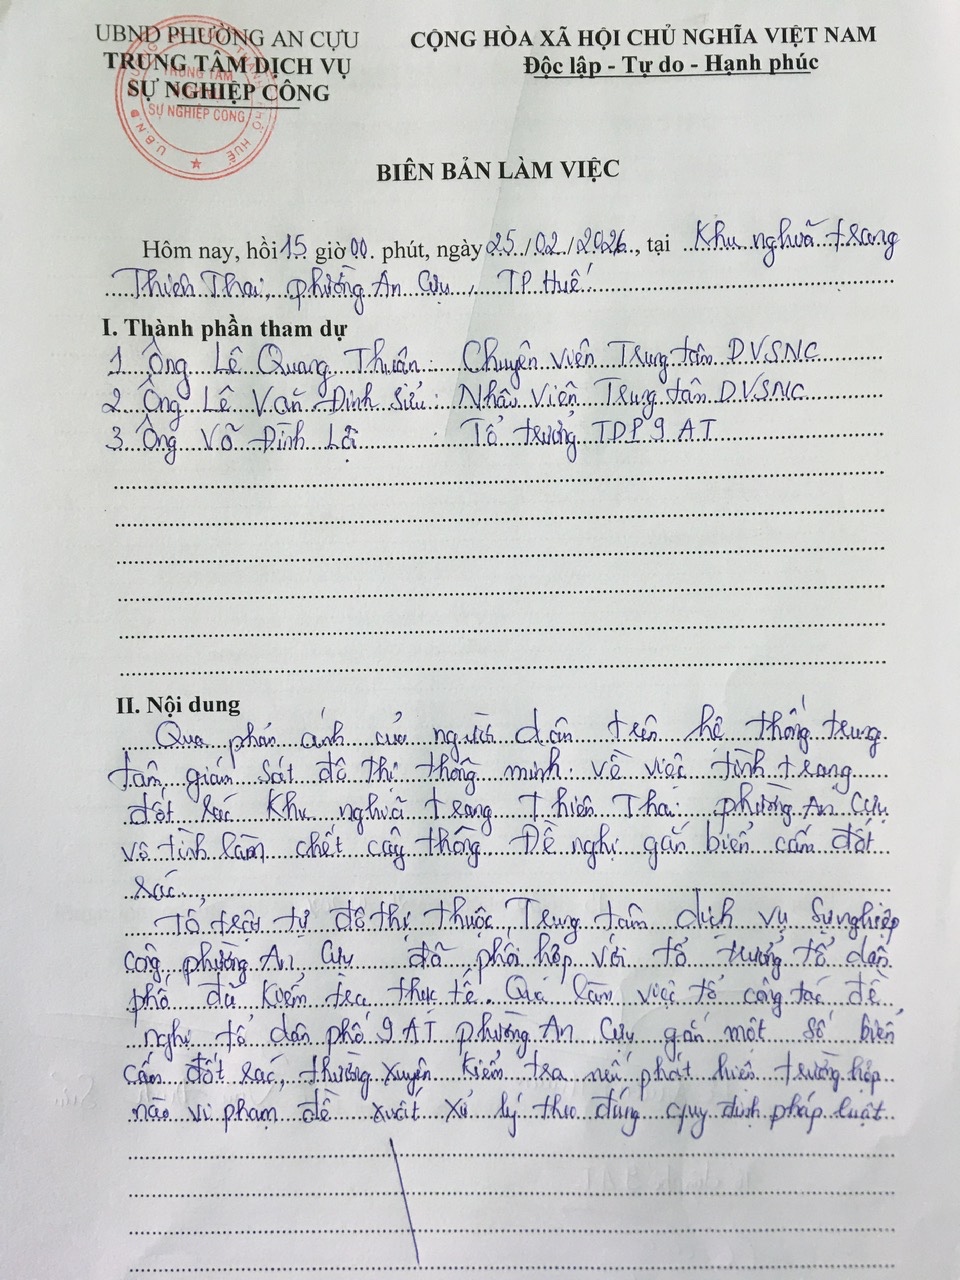 UBND PHƯỜNG AN CỰU
TRUNG TÂM DỊCH VỤ
SỰ NGHIỆP CÔNG
CỘNG HÒA XÃ HỘI CHỦ NGHĨA VIỆT NAM
Độc lập - Tự do - Hạnh phúc
TRUNG TÂM
SỰ NGHIỆP CÔNG
U.B.N.D
HUẾ
BIÊN BẢN LÀM VIỆC
Hôm nay, hồi 15 giờ 00 phút, ngày 25/02/2026, tại Khu nghĩa trang
Thiên Thai, phường An Cựu, TP Huế.
I. Thành phần tham dự
1. Ông Lê Quang Thuân: Chuyên viên Trung tâm DVSNC
2. Ông Lê Văn Đình Sửu: Nhân Viên Trung tâm DVSNC
3. Ông Võ Đình Lợi : Tổ trưởng TDP 9 AT
II. Nội dung
Qua phản ánh của người dân trên hệ thống trung
tâm giám sát đô thị thông minh về việc tình trạng
đốt rác Khu nghĩa trang Thiên Thai phường An Cựu
vô tình làm chết cây thông. Đề nghị gắn biển cấm đốt
rác.
Tổ trật tự đô thị thuộc Trung tâm dịch vụ Sự nghiệp
công phường An Cựu đã phối hợp với tổ trưởng tổ dân
phố đi kiểm tra thực tế. Quá làm việc tổ công tác đề
nghị tổ dân phố 9 AT phường An Cựu gắn một số biển
cấm đốt rác, thường xuyên kiểm tra nếu phát hiện trường hợp
nào vi phạm đề xuất xử lý theo đúng quy định pháp luật